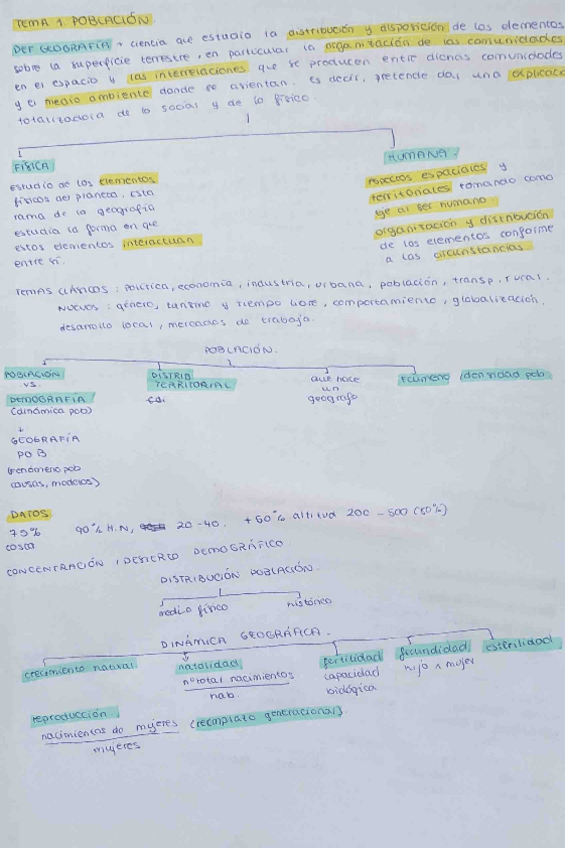 TEMA 1. POBLACIÓN.
DEF GEOGRAFÍA → ciencia que estudia la distribución y disposición de los elementos
sobre la superficie terrestre, en particular la organización de las comunidades
en el espacio y las interrelaciones que se producen entre dichas comunidades
y el medio ambiente donde se asientan. Es decir, pretende dar una explicac
totalizadora de lo social y de lo físico.
FÍSICA
estudio de los elementos
físicos del planeta. Esta
rama de la geografía
estudia la forma en que
estos elementos interactuan
entre sí.
HUMANA.
Aspectos espaciales y
territoriales tomando como
eje al ser humano.
organización y distribución
de los elementos conforme
a las circunstancias.
TEMAS CLÁSICOS: política, economía, industria, urbana, población, transp, rural.
NUEVOS: género, turismo y tiempo libre, comportamiento, globalización,
desarrollo local, mercados de trabajo.
POBLACIÓN.
POBLACIÓN
vs.
DEMOGRAFÍA
(dinámica pob)
+
GEOGRAFÍA
POB
(fenómeno pob
causas, modelos)
DISTRIB
TERRITORIAL
qué hace
un
geógrafo
ecúmene /densidad pob.
DATOS
75%
costa
90% H.N, 20-40. +60% altitud 200-500 (80%)
CONCENTRACIÓN / DESIERTO DEMOGRÁFICO
DISTRIBUCIÓN POBLACIÓN.
medio físico
histórico
DINÁMICA GEOGRÁFICA.
crecimiento natural
natalidad
nº total nacimientos
hab.
fertilidad
capacidad
biológica
fecundidad
hijo x mujer
esterilidad
reproducción
nacimientos de mujeres (reemplazo generacional).
mujeres